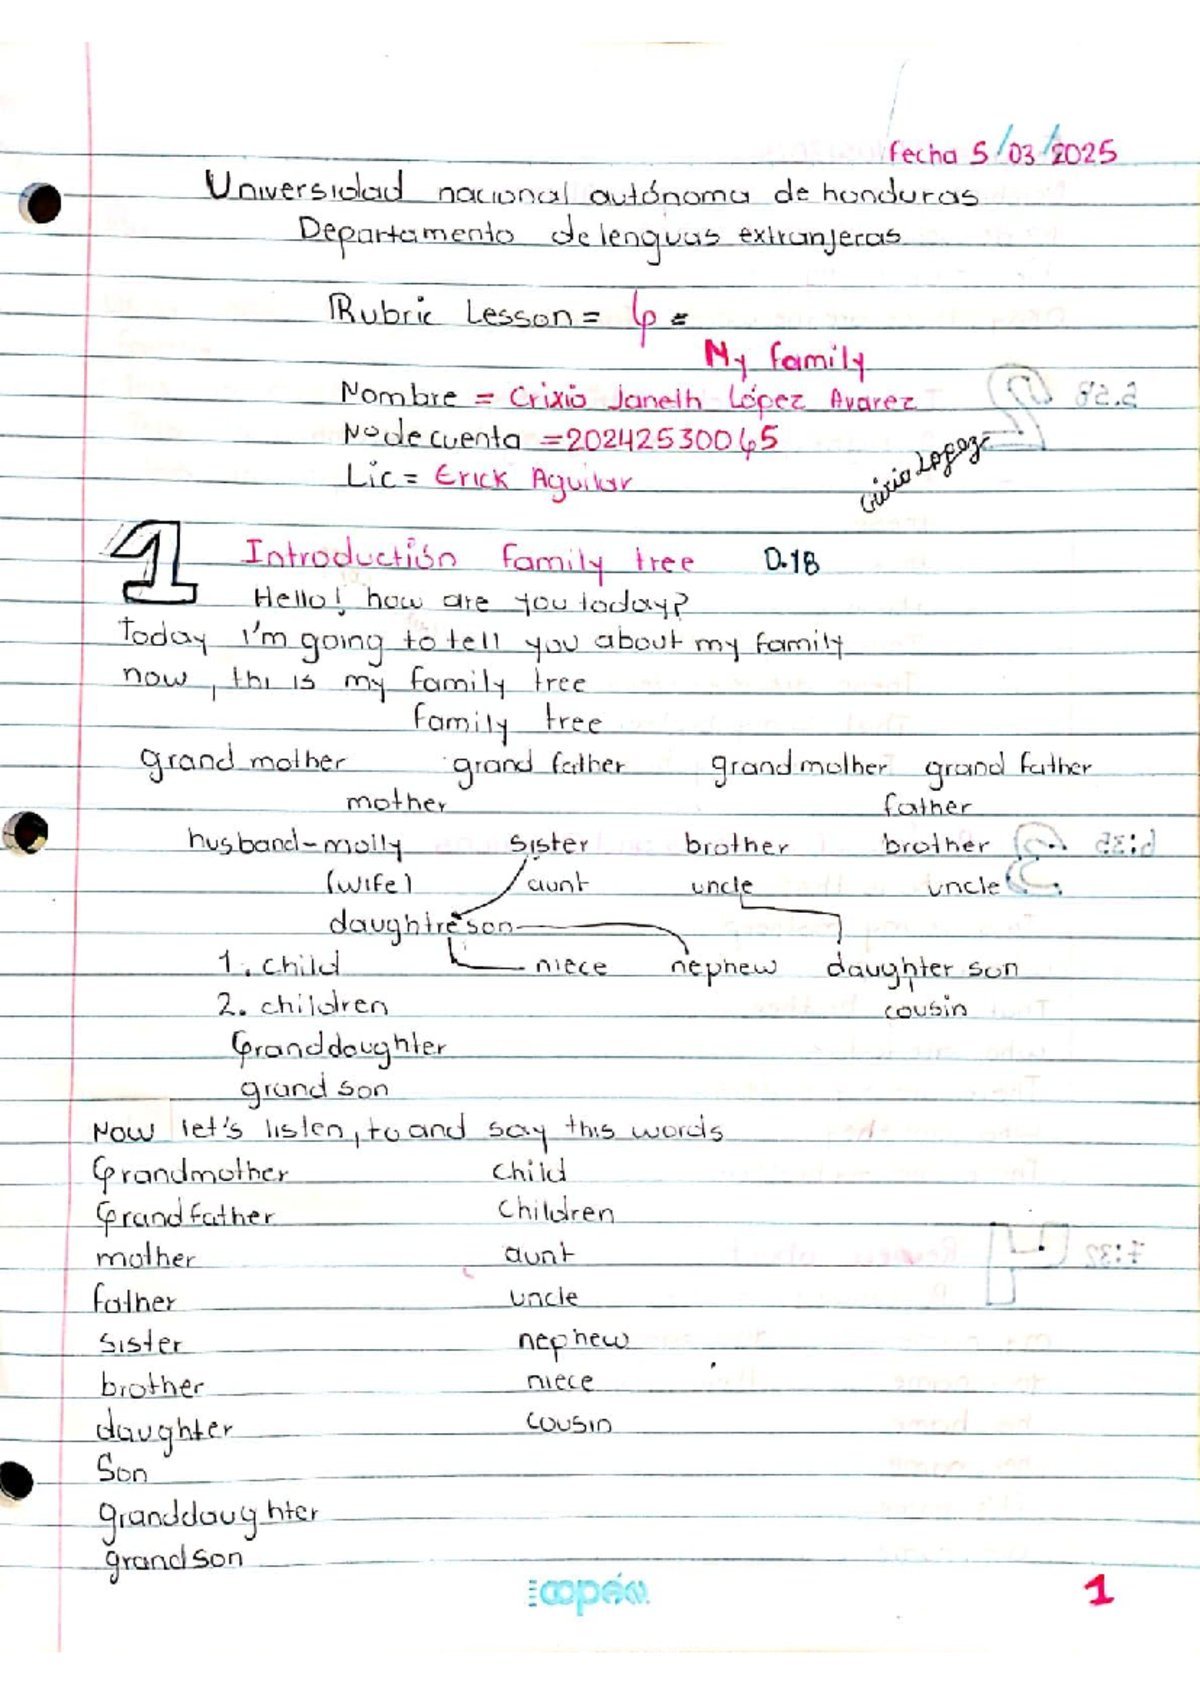 fecha 5/03/2025
Universidad nacional autónoma de honduras
Departamento de lenguas extranjeras
Rubric Lesson = 6 =
My family
Nombre = Crixio Janeth López Avarez
5.58
No de cuenta = 20242530065
Lic = Erick Aguilar
Crixio Lopez
1 Introductión family tree 0.18
Hello! how are you today?
Today I'm going to tell you about my family
now, thi is my family tree
family tree
grand mother grand father grand mother grand father
mother father
husband-molly sister brother brother
(wife) aunt uncle uncle
daughtre son
1. child niece nephew daughter son
2. children cousin
Granddaughter
grand son
Now let's listen, to and say this words
Grandmother child
Grandfather children
mother aunt
father uncle
sister nephew
brother niece
daughter cousin
Son
granddaughter
grandson
copán
1